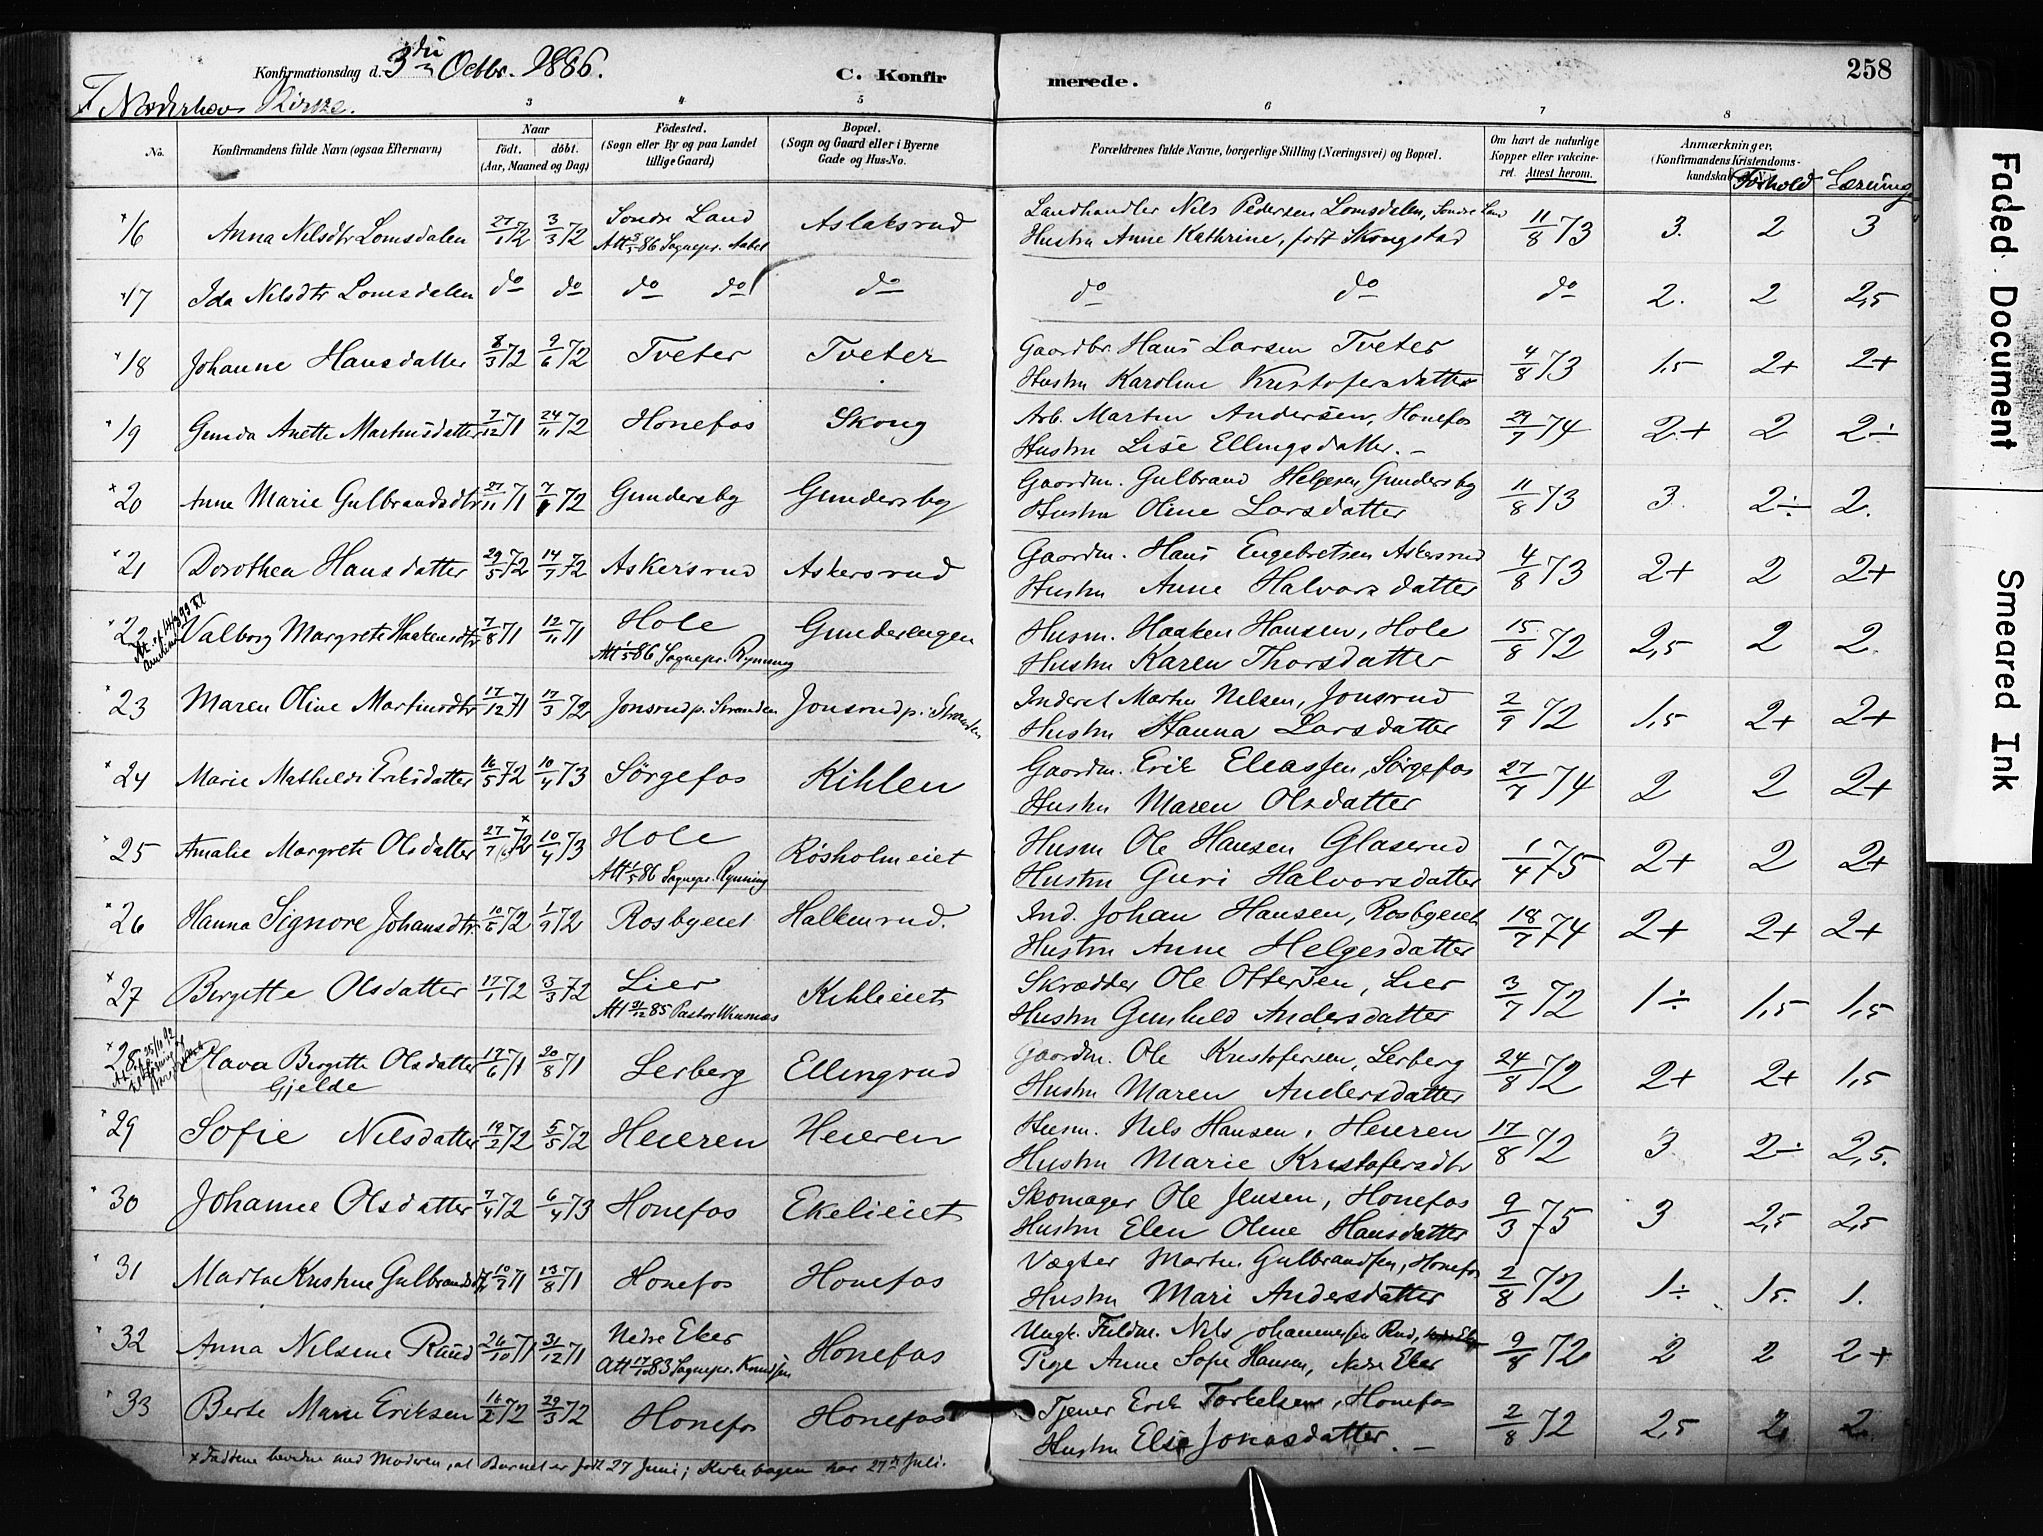 258
Konfirmationsdag d. 3die Octbr. 1886.
C. Konfirmerede.
I Norderhov Kirke.
3 4 5 6 7 8
No.
Konfirmandens fulde Navn (ogsaa Efternavn)
Naar
födt. döbt.
(Aar, Maaned og Dag)
Födested.
(Sogn eller By og paa Landet
tillige Gaard)
Bopæl.
(Sogn og Gaard eller i Byerne
Gade og Hus-No.
Forældrenes fulde Navne, borgerlige Stilling (Næringsvei) og Bopæl.
Om havt de naturlige
Kopper eller vakcine-
ret. Attest herom.
Anmærkninger.
(Konfirmandens Kristendoms-
kundskab
Forhold Læsning
16 Anna Nilsdtr Lomsdalen 27/1 72 3/3 72 Søndre Land Aslaksrud Landhandler Nils Pedersen Lomsdalen, Søndre Land 11/8 73 3. 2 3
Att 86 Sognepr. Aabel Hustru Anne Kathrine, født Skougstad
17 Ida Nilsdtr Lomsdalen do do do do do do do do 2. 2 2,5
18 Johanne Hansdatter 8/3 72 9/6 72 Tveter Tveter Gaardbr. Hans Larsen Tveter 4/8 73 1,5 2+ 2+
Hustru Karoline Kristofersdatter
19 Gunda Anette Martinsdatter 7/12 71 24/11 72 Honefos Skoug Arb. Martin Andersen, Honefos 29/7 74 2+ 2 2÷
Hustru Lise Ellingsdatter. –
20 Anne Marie Gulbrandsdtr 27/11 71 7/1 72 Gundersby Gundersby Gaardm. Gulbrand Helgesen Gundersby 11/8 73 3. 2÷ 2.
Hustru Oline Larsdatter
21 Dorothea Hansdatter 29/5 72 14/7 72 Askersrud Askersrud Gaardm. Hans Engebretsen Askersrud 4/8 73 2+ 2 2+
Hustru Anne Halvorsdatter
22 Valborg Margrete Haakensdtr 7/8 71 12/11 71 Hole Gunderengen Husm. Haaken Hansen, Hole 15/8 72 2,5 2 2.
Att 1/5 86 Sognepr. Rynning Hustru Karen Thorsdatter
23 Maren Oline Martinsdtr 17/12 71 17/3 72 Jonsrud p. Stranden Jonsrud p. Stranden Inderst Martin Nilsen, Jonsrud 2/9 72 1,5 2+ 2+
Hustru Hanna Larsdatter
24 Marie Mathilde Eriksdatter 16/5 72 10/4 73 Sörgefos Kihlen Gaardm. Erik Eleassen, Sörgefos 27/7 74 2 2 2+
Hustru Maren Olsdatter
25 Amalie Margrete Olsdatter 27/7 72 x 10/4 73 Hole Rösholmeiet Husm Ole Hansen Glaserud 1/4 75 2+ 2 2+
Att 1/5 86 Sognepr. Rynning Hustru Guri Halvorsdatter
26 Hanna Signore Johansdtr 10/6 72 1/9 72 Rosbyeiet Halkenrud. Ind. Johan Hansen, Rosbyeiet 18/7 74 2+ 2+ 2+
Hustru Anne Helgesdatter
27 Birgitte Olsdatter 17/1 72 3/3 72 Lier Kihleiet Skrædder Ole Ottersen, Lier 3/7 72 1÷ 1,5 1,5
Att 31/12 85 Pastor Hustru Gunhild Andersdatter
28 Olava Birgitte Olsdatter 17/6 71 20/8 71 Lerberg Ellingrud Gaardm. Ole Kristofersen, Lerberg 24/8 72 2+ 2+ 1,5
Gjelde Hustru Maren Andersdatter
29 Sofie Nilsdatter 19/2 72 5/5 72 Heieren Heieren Husm. Nils Hansen, Heieren 17/8 72 3 2÷ 2,5.
Hustru Marie Kristofersdtr
30 Johanne Olsdatter 7/4 72 6/4 73 Honefos Ekelieiet Skomager Ole Jensen, Honefos 9/3 75 3 2,5 2,5
Hustru Elen Oline Hansdatter
31 Marta Kristine Gulbrandsdtr 10/7 71 13/8 71 Honefos Honefos Vægter Martin Gulbrandsen, Honefos 2/8 72 1÷ 1,5. 1.
Hustru Mari Andersdatter
32 Anna Nilsine Ruud 26/10 71 31/12 71 Nedre Eker Honefos Ungk. Fuldm. Nils Johannessen Rud, 9/8 72 2 2 2+
Att 17/7 83 Sognepr. Knudsen Pige Anne Sofie Hansen, Nedre Eker
33 Berte Marie Eriksen 16/2 72 29/3 72 Honefos Honefos Tjener Erik Torkelsen, Honefos 2/8 72 2,5 2. 2.
Hustru Else Jonasdatter. –
x Faddene bevidne med Moderen, at Barnet er født 27 Juni; Kirkebogen har 27de Juli.
Faded Document
Smeared Ink